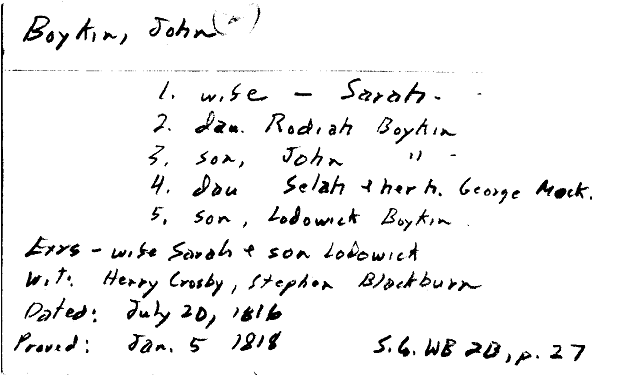 Boykin, John
1. wife - Sarah.
2. dau. Rodiah Boykin
3. son, John "
4. dau Selah + her h. George Mock.
5. son, Lodowick Boykin
Exrs - wife Sarah + son Lodowick
Wit: Henry Crosby, Stephen Blackburn
Dated: July 20, 1816
Proved: Jan. 5 1818 S.G. WB 2B, p. 27